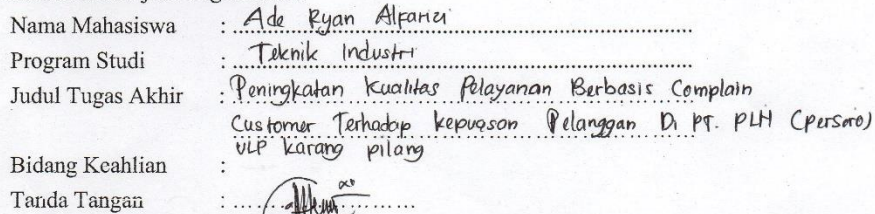 Nama Mahasiswa : Ade Ryan Alfarizi
Program Studi : Teknik Industri
Judul Tugas Akhir : Peningkatan Kualitas Pelayanan Berbasis Complain
Customer Terhadap kepuasan Pelanggan Di PT. PLN (Persero)
ULP karang pilang
Bidang Keahlian :
Tanda Tangan :